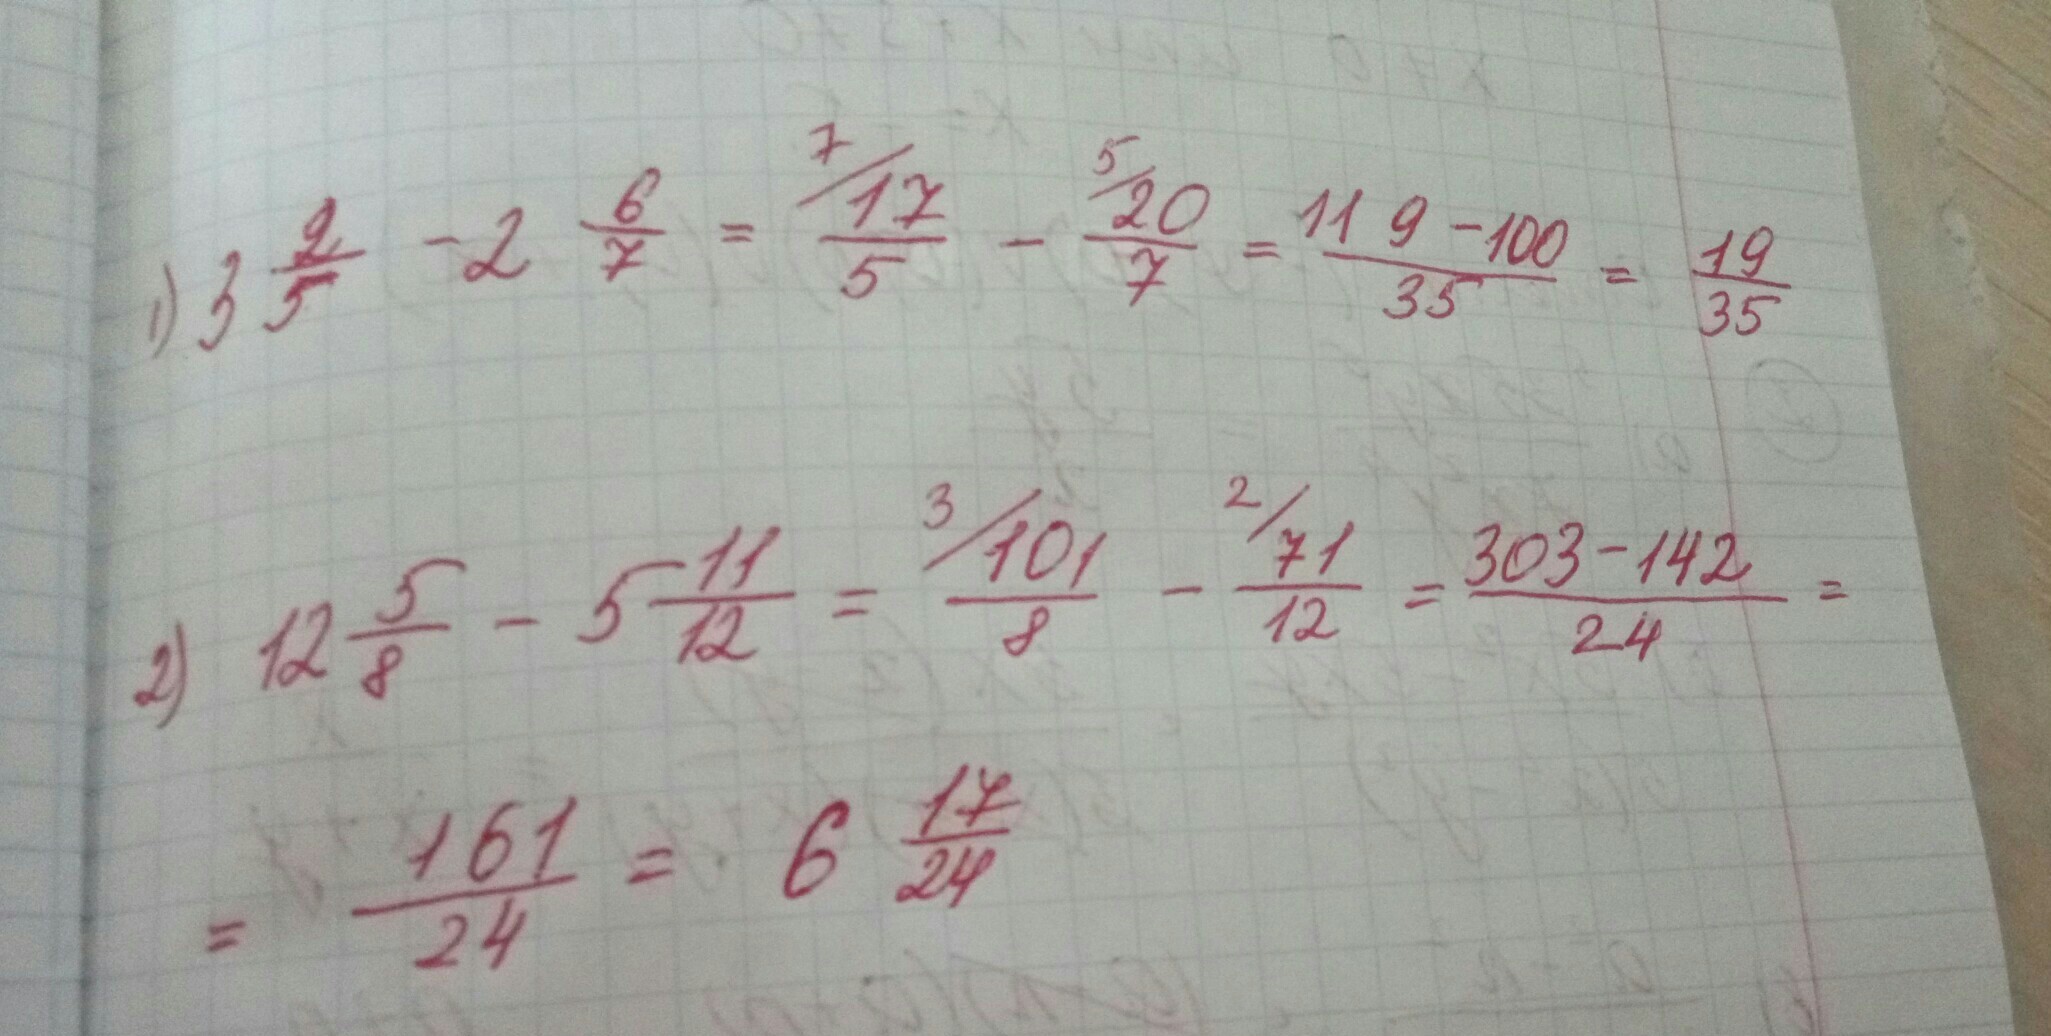 1) 3 2/5 - 2 6/7 = 7/ 17/5 - 5/ 20/7 = 119-100/35 = 19/35
2) 12 5/8 - 5 11/12 = 3/ 101/8 - 2/ 71/12 = 303-142/24 =
= 161/24 = 6 17/24